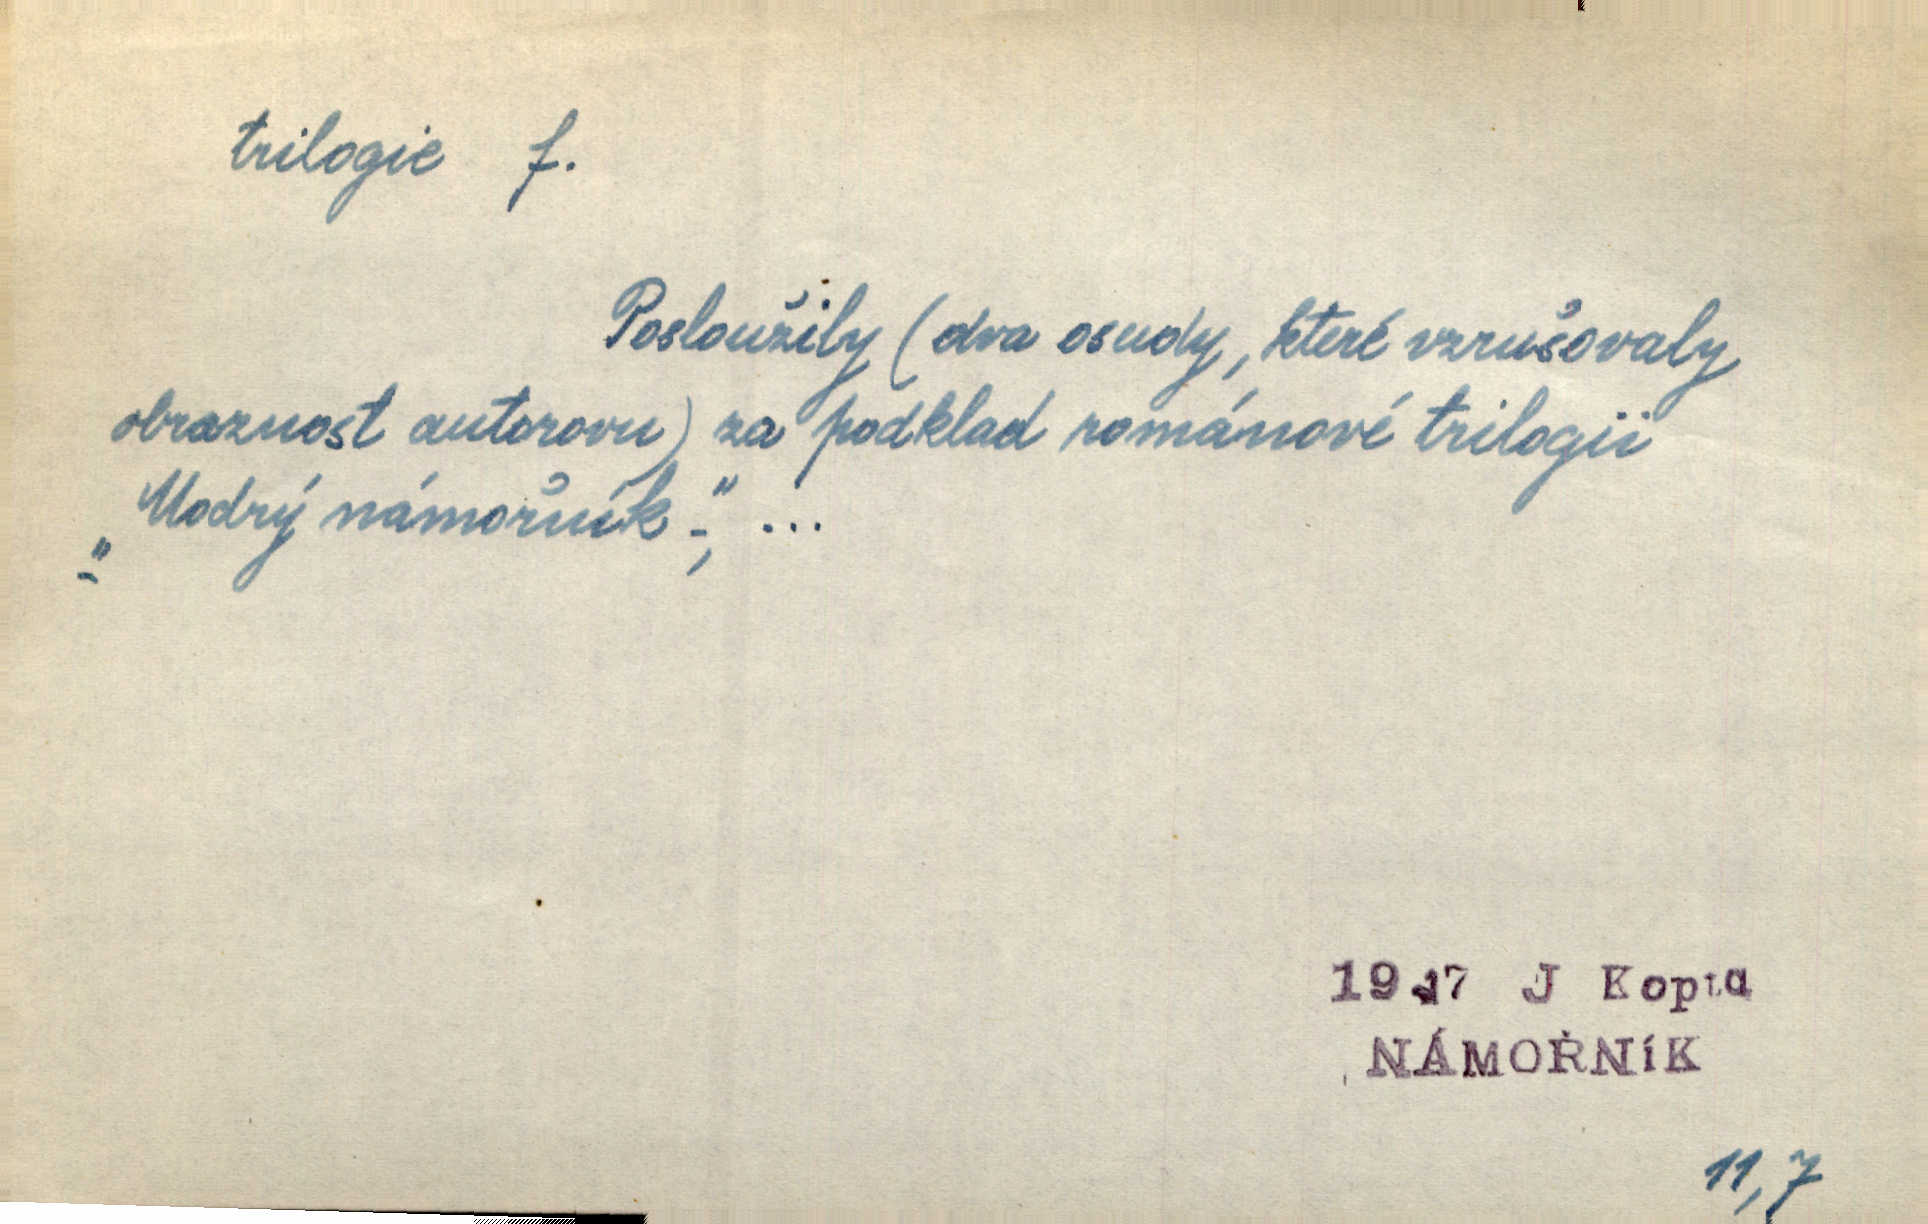 trilogie f.
Posloužily (dva osudy, které vzrušovaly
obraznost autorovu) za podklad románové trilogii
„Modrý námořník-", ...
J Kopta
NÁMOŘNÍK
11,7